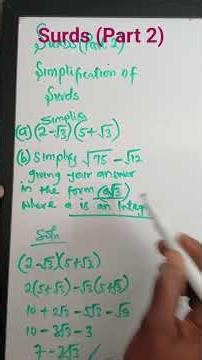 Surds (Part 2)
Surds (Part 2)
Simplification of
Surds
Simplify
(a) (2-√3)(5+√3)
(b) Simplify √75 - √12
giving your answer
in the form (a√3)
where a is an Integ
Soln
(2-√3)(5+√3)
2(5+√3) -√3(5+√3)
10 + 2√3 - 5√3 - √9
10 - 3√3 - 3
7 - 3√3